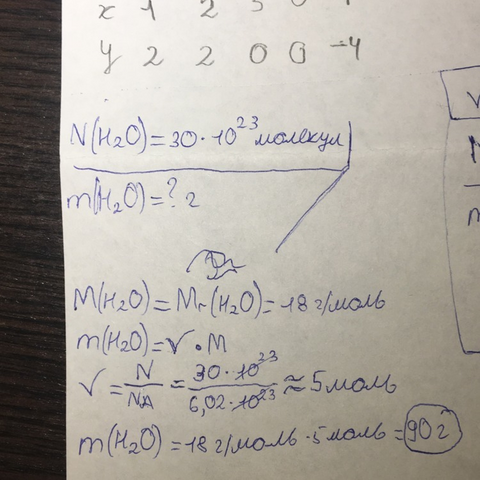 x 1 2 3
y 2 2 0 0 -4
N(H₂O)=30·10²³ молекул
m(H₂O)=? г
M(H₂O)=Mr(H₂O)=18 г/моль
m(H₂O)=V·M
V=N/NA=30·10²³/6,02·10²³≈5 моль
m(H₂O)=18 г/моль·5 моль=90 г